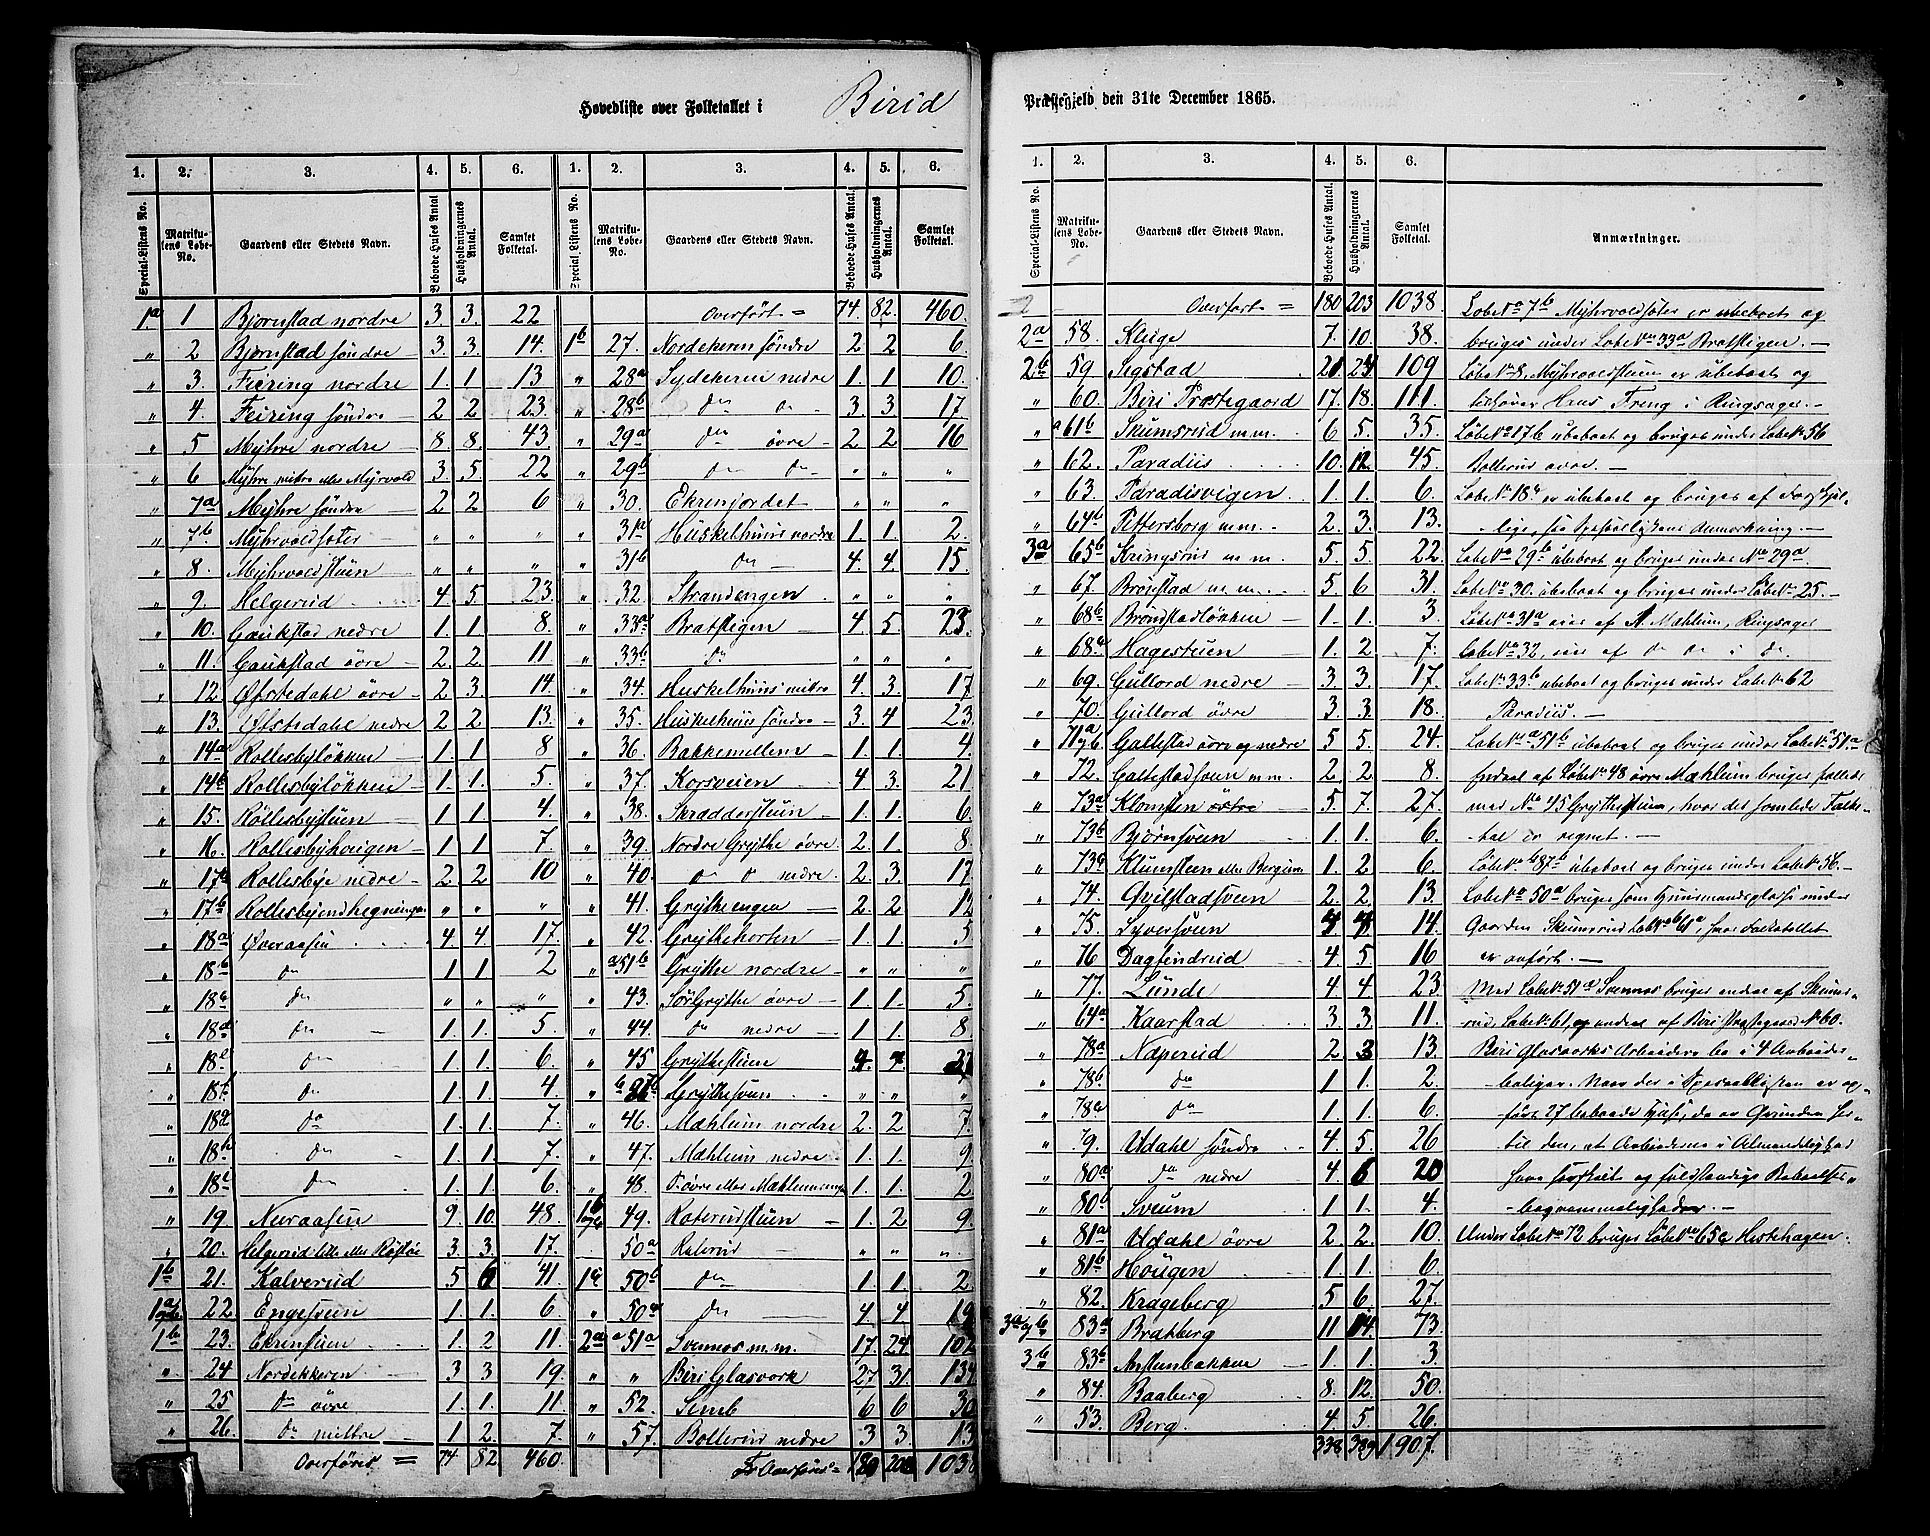 Hovedliste over Folketallet i Birid
Præstegjeld den 31te December 1865.
1. 2. 3. 4. 5. 6. 1. 2. 3. 4. 5. 6.
Special-Listens No. Matrikulens Løbe-No. Gaardens eller Stedets Navn. Beboede Huses Antal Husholdningernes Antal Samlet Folketal. Special Listens No. Matrikulens Løbe-No. Gaardens eller Stedets Navn. Beboede Huses Antal. Husholdningernes Antal Samlet Folketal.
1a 1 Bjørnstad nordre 3. 3. 22 Overført = 74. 82. 460.
" 2 Bjørnstad søndre 3. 3. 14. 1b 27. Nordekeren søndre 2 2 6.
" 3. Feiring nordre 1. 1 13 " 28a Sydekeren nedre 1. 1 10.
" 4. Feiring søndre 2 2 23. " 28b do do 3. 3 17.
" 5 Myhre nordre 8 8. 43. " 29a do øvre 2. 2 16
" 6 Myhre mitre eller Myrvold 3. 5. 22 " 29b do do " " "
" 7a Myhre søndre 2 2 6 " 30. Ekrenjordet " " "
" 7b Myhrvoldsæter " " " " 31a Huskelhuus nordre 1. 1. 2.
" 8. Myhrvoldstuen " " " " 31b do 4. 4. 15.
" 9. Helgerud 4. 5. 23. " 32. Strandengen " " "
" 10. Gaukstad nedre 1. 1 8. " 33a Bratstigen 4. 5. 23.
" 11. Gaukstad øvre 2. 2. 11. " 33b do " " "
" 12. Øfstedahl øvre 2. 3. 14. " 34. Huskelhuus mitre 4. 3. 17
" 13. Øfstedahl nedre 2 2. 13. " 35. Huskelhuus søndre 3. 4 23.
" 14a Rollesbyløkken 1. 1 8 " 36. Bakkemellem 1. 1. 4.
" 14b Rollesbyløkken 1. 1. 5. " 37. Korsveien 4. 3. 21
" 15. Rollesbystuen 1. 1. 4. " 38. Skrædderstuen 1. 1. 6.
" 16. Rollesbyhougen 1. 1. 7. " 39. Nordre Grythe øvre 2. 1. 8.
" 17a Rollesbye nedre 2. 2 10 " 40. do do nedre 2. 3. 17.
" 17b Rollesbyindhegningen " " " " 41. Grytheengen 2. 2 12
" 18a Øveraasen 4. 4. 17. " 42. Grythehorten 1. 1. 5
" 18b do 1. 1 2 a 51b Grythe nordre " " "
" 18c do " " " " 43. Sør Grythe øvre 1. 1. 5.
" 18d do 1. 1. 5. " 44. do nedre 1. 1. 8.
" 18e do 1. 1. 6. " 45 Grythestuen 4.
" 18f do 1. 1. 4. Grythesveen " " "
" 18g do 1. 1. 7. " 46. Mæhlum nordre 2. 2 7.
" 18h do 1. 1. 7. " 47. Mæhlum nedre 1. 1. 9.
" 18i do 1. 1. 6. " 48. 1. 1. 2
" 19 Neraasen 9. 10. 48. 49. Roterudstuen 1. 2 9.
" 20. Helgerud lille eller Røstøe 3. 3. 17. 50a Roterud " " "
1b 21. Kalverud 5 6 41. 1c 50b do 1. 1. 2
22. Engesveen 1. 1. 6. " 50c do 4 4 19
1b 23. Ekrensveen 1. 2 11. 2a a 51a Svennes m.m. 17. 24. 102
" 24 Nordekkeren 3 3 19. " " Biri Glasværk 27 31. 134
" 25 do øvre 1. 1. 11. " 52. Semb 6 6 30
" 26. do mittre 1. 2. 7. " 57. Bollerud nedre 3 3 13
Overføres = 74 82 460. Overføres = 180 203 1038
1. 2. 3. 4. 5. 6.
Special-Listens No. Matrikulens Løbe-No. Gaardens eller Stedets Navn. Beboede Huses Antal. Husholdningernes Antal. Samlet Folketal. Anmærkninger.
Overført = 180 203 1038. Løbe No 7b Myhrvoldsæter er ubeboet og
2a 58. Kluge 7. 10. 38. bruges under Løbe No 33a Bratstigen.
2b 59 Sigstad 21. 24 109 Løbe No 8, Myhrvoldstuen er ubeboet og
" 60. Biri Præstegaard 17. 18. 111. tilhører Hans Freng i Ringsager.
" a 61b Skumsrud m.m. 6 5. 35. Løbe No 17b ubeboet og bruges under Løbe No 56
" 62. Paradiis 10. 12. 45. Bollerud øvre.
" 63. Paradisvigen 1. 1. 6. Løbe No 18c er ubeboet og bruges af Forskjel-
" 64b Pettersborg m.m. 2. 3. 13. -lige, se Specsallistens Anmærkning.
3a 65b Kringsrud m.m. 5. 5. 22. Løbe No 29b ubeboet og bruges under No 29a.
" 67. Brønstad m.m. 5 6 31. Løbe No 30. ubeboet og bruges under Løbe No 25.
" 68b Brøndstadløkken 1. 1. 3 Løbe No 31a eies af A. Mæhlum, Ringsager
" 68a Hagestuen 1. 2 7. Løbe No 32, eies af do do i do.
" 69. Gullord nedre 3 3. 17. Løbe No 33b ubeboet og bruges under Løbe No 62
" 70. Gullord øvre 3. 3. 18. Paradiis.
" 71a og b Galtestad øvre og nedre 5 5. 24. Løbe No a 51b ubeboet og bruges under Løbe No 51a
" 72. Galtestadsveen m.m. 2 2 8. Endeel af Løbe No 48 øvre Mæhlum bruges fælleds
" 73a Klomsten østre 5. 7. 27. med No 45 Grythestuen, hvor det samlede Folke-
" 73b Bjørnsveen 1. 1. 6. -tal er regnet.
" 73c Klumsteen eller Bergsveen 1. 2 6. Løbe No b 87b ubeboet og bruges under Løbe No 36.
" 74. Qvilstadsveen 2. 2. 13. Løbe No 50a bruges som Huusmandsplads under
" 75. Syversveen 4 4 14. Gaarden Skumsrud Løbe No b 61a, hvor Folketallet
" 76 Dagfindrud 4. 5. 16 er anført.
" 77. Lunde 4. 4. 23. Med Løbe No 51a Svennes bruges endeel af Skums-
" 64a Kaarstad 3 3. 11. rud, Løbe No 61, og endeel af Biri Præstegaard No 60.
" 78a Næperud 2 3 13. Biri Glasværks Arbeidere bo i 4 Arbeider-
" 78b do 1. 1 2. -boliger. Naar der i Specsallisten er op-
" 78c do 1. 1. 6. -ført 27 beboede Huse, da er Grunden her-
" 79. Udahl søndre 4. 5. 26 til den, at Arbeiderne i Almindelighed
" 80a do nedre 4. 6 20 have særskilt og fuldstændige
" 80b Sveum 1. 1. 4.
" 81a Udahl øvre 2. 2. 10. Under Løbe No 72 bruges Løbe No 65a Hestehagen.
" 81b Hougen 1. 1. 6.
" 82. Krageberg 5 6. 27.
3a og b 83a Bratberg 11 14. 73.
3b 83b Anstenbakken 1. 1. 3.
" 84. Baaberg 8. 12. 50.
" 53. Berg 4. 5. 26.
338 389 1907.